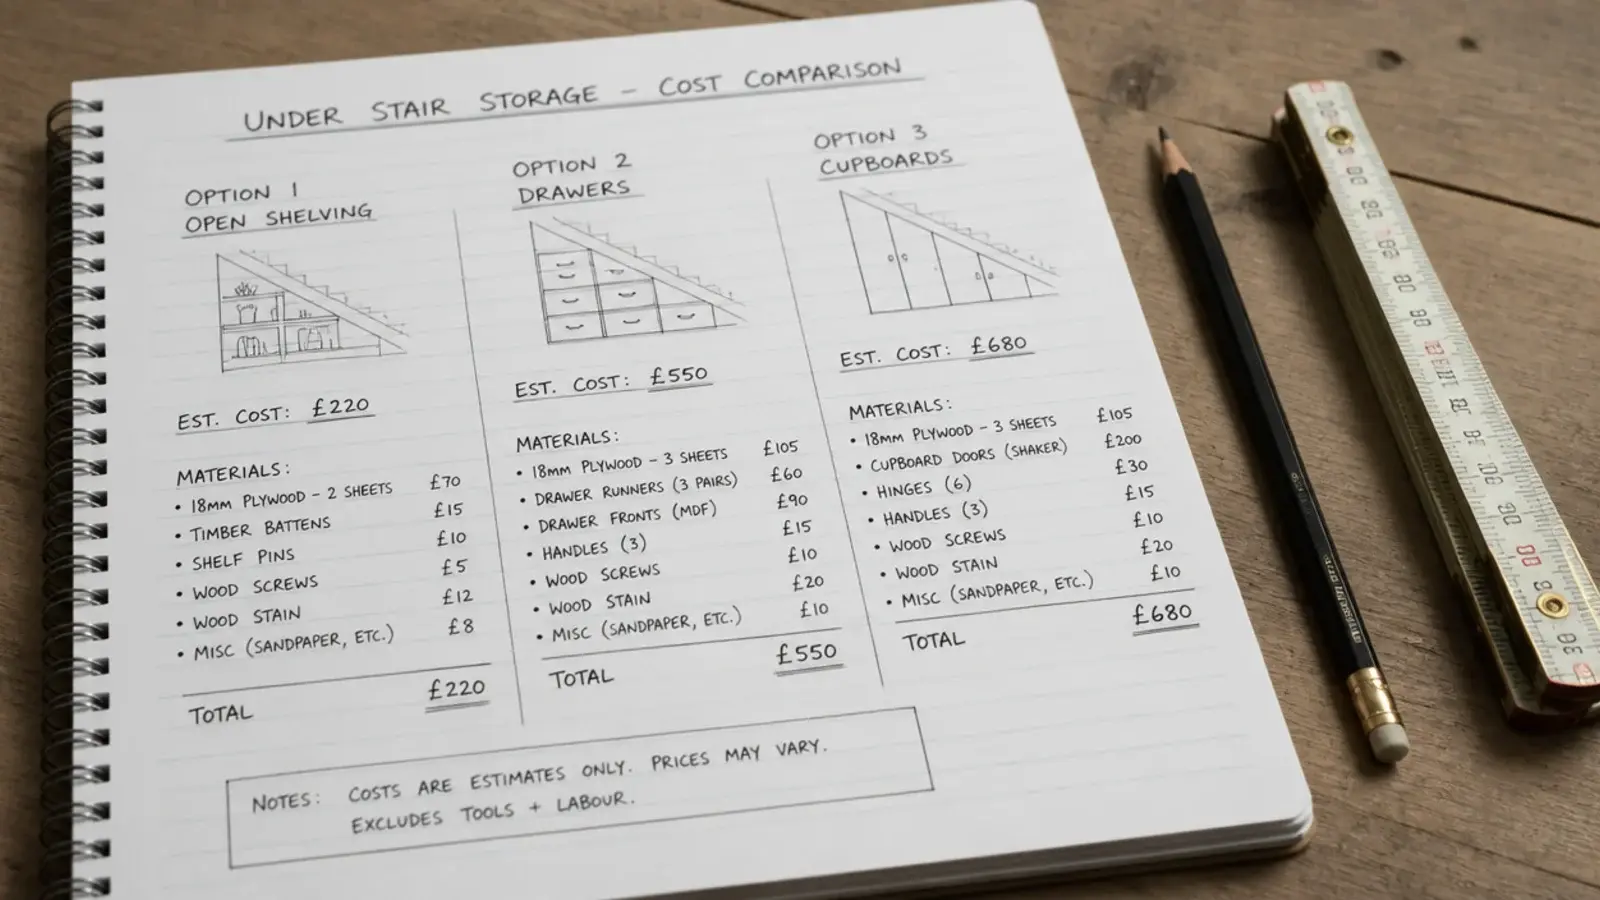 UNDER STAIR STORAGE – COST COMPARISON
OPTION 1
OPEN SHELVING
EST. COST: £220
MATERIALS:
• 18MM PLYWOOD – 2 SHEETS £70
• TIMBER BATTENS £15
• SHELF PINS £10
• WOOD SCREWS £5
• WOOD STAIN £12
• MISC (SANDPAPER, ETC.) £8
TOTAL £220
OPTION 2
DRAWERS
EST. COST: £550
MATERIALS:
• 18MM PLYWOOD – 3 SHEETS £105
• DRAWER RUNNERS (3 PAIRS) £60
• DRAWER FRONTS (MDF) £90
• HANDLES (3) £15
• WOOD SCREWS £10
• WOOD STAIN £20
• MISC (SANDPAPER, ETC.) £10
TOTAL £550
OPTION 3
CUPBOARDS
EST. COST: £680
MATERIALS:
• 18MM PLYWOOD – 3 SHEETS £105
• CUPBOARD DOORS (SHAKER) £200
• HINGES (6) £30
• HANDLES (3) £15
• WOOD SCREWS £10
• WOOD STAIN £20
• MISC (SANDPAPER, ETC.) £10
TOTAL £680
NOTES: COSTS ARE ESTIMATES ONLY. PRICES MAY VARY.
EXCLUDES TOOLS + LABOUR.